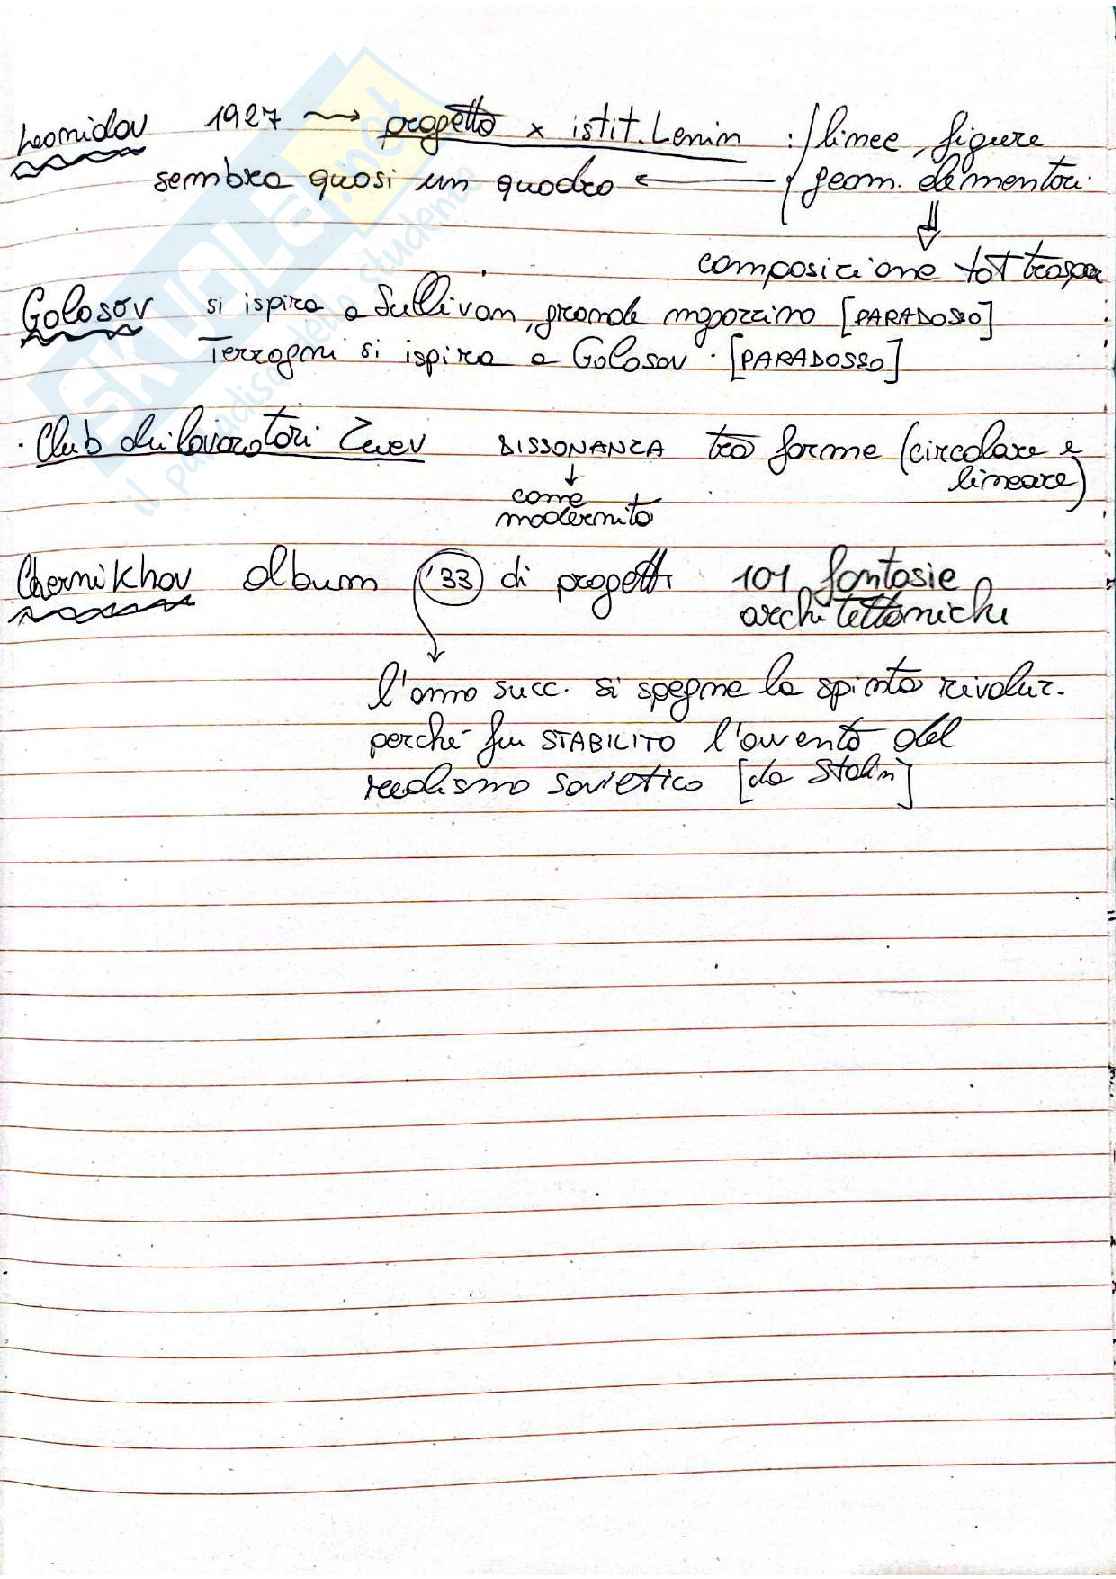 Leonidov 1927 → progetto x istit. Lenin : linee, figure
sembra quasi un quadro ← geom. elementari.
⇓
composizione tot traspar
Golosov si ispira a Sullivan, grande magazzino [PARADOSSO]
Terragni si ispira a Golosov. [PARADOSSO]
. Club dei lavoratori Zuev DISSONANZA tra forme (circolare e
lineare)
↓
come
modernità
Chernikhov album '33 di progetti 101 fantasie
architettoniche
↓
l'anno succ. si spegne la spinta rivoluz.
perché fu STABILITO l'avvento del
realismo sovietico [da Stalin]
SKUOLA.net
il paradiso dello studente